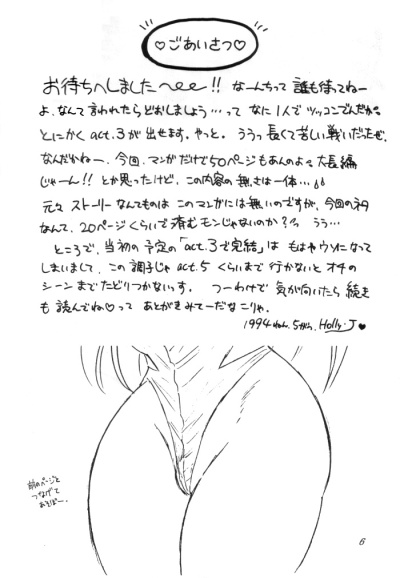 ♡ごあいさつ♡
お待ちへしました〜ee!! なーんちって 誰も待ってねー
よ、なんて言われたらどおしましょう…って なに1人でツッコンでんだか。
とにかく act.3が出せます。やっと。 ううっ 長くて苦しい戦いだったぜ。
なんだかねー、今回、マンガだけで50ページもあんのよ。大長編
じゃーん!! とか思ったけど、この内容の無さは一体…
元々 ストーリーなんてものは このマンガには無いのですが、今回のネタ
なんて、20ページくらいで済むモンじゃないのか?っ うう…
ところで、当初の予定の「act.3で完結」は もはやウソになって
しまいまして、この調子じゃ act.5 くらいまで 行かないと オチの
シーンまでたどりつかないっす。 つーわけで 気が向いたら 続き
も 読んでね♡って あとがきみてーだなこりゃ。
1994ねん.5がつ. Holly・J♥
前のページと
つなげて
あそぼー。
6